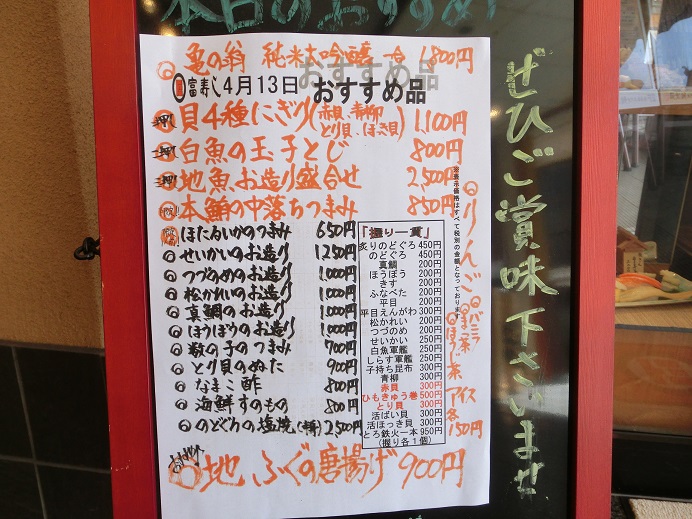 本日のおすすめ!
亀の翁 純米大吟醸 一合 1,800円
おすすめ品
富寿し4月13日 おすすめ品
押! 貝4種にぎり(赤貝、青柳 とり貝、ほっき貝) 1,100円
押! 白魚の玉子とじ 800円
押! 地魚お造り盛合せ 2,500円
本鮪の中落ちつまみ 850円
ほたるいかのつまみ 650円
せいかいのお造り 1250円
つづのめのお造り 1,000円
松かれいのお造り 1,000円
真鯛のお造り 1,000円
ほうぼうのお造り 1,000円
数の子のつまみ 700円
とり貝のぬた 900円
なまこ酢 800円
海鮮すのもの 800円
のどぐろの塩焼(半身) 2,500円
地ふぐの唐揚げ 900円
「握り一貫」
炙りのどぐろ 450円
のどぐろ 450円
真鯛 200円
ほうぼう 200円
きす 200円
ふなべた 200円
平目 200円
平目えんがわ 300円
松かれい 200円
つづのめ 200円
せいかい 250円
白魚軍艦 250円
しらす軍艦 250円
子持ち昆布 300円
青柳 300円
赤貝 300円
ひもきゅう巻 500円
とり貝 300円
活ばい貝 300円
活ほっき貝 300円
とろ鉄火一本 950円
(握り各1個)
※表示価格はすべて税別の金額となっております
りんご
バニラ
まっ茶
ほうじ茶
アイス
各
150円
ぜひご賞味下さいませ